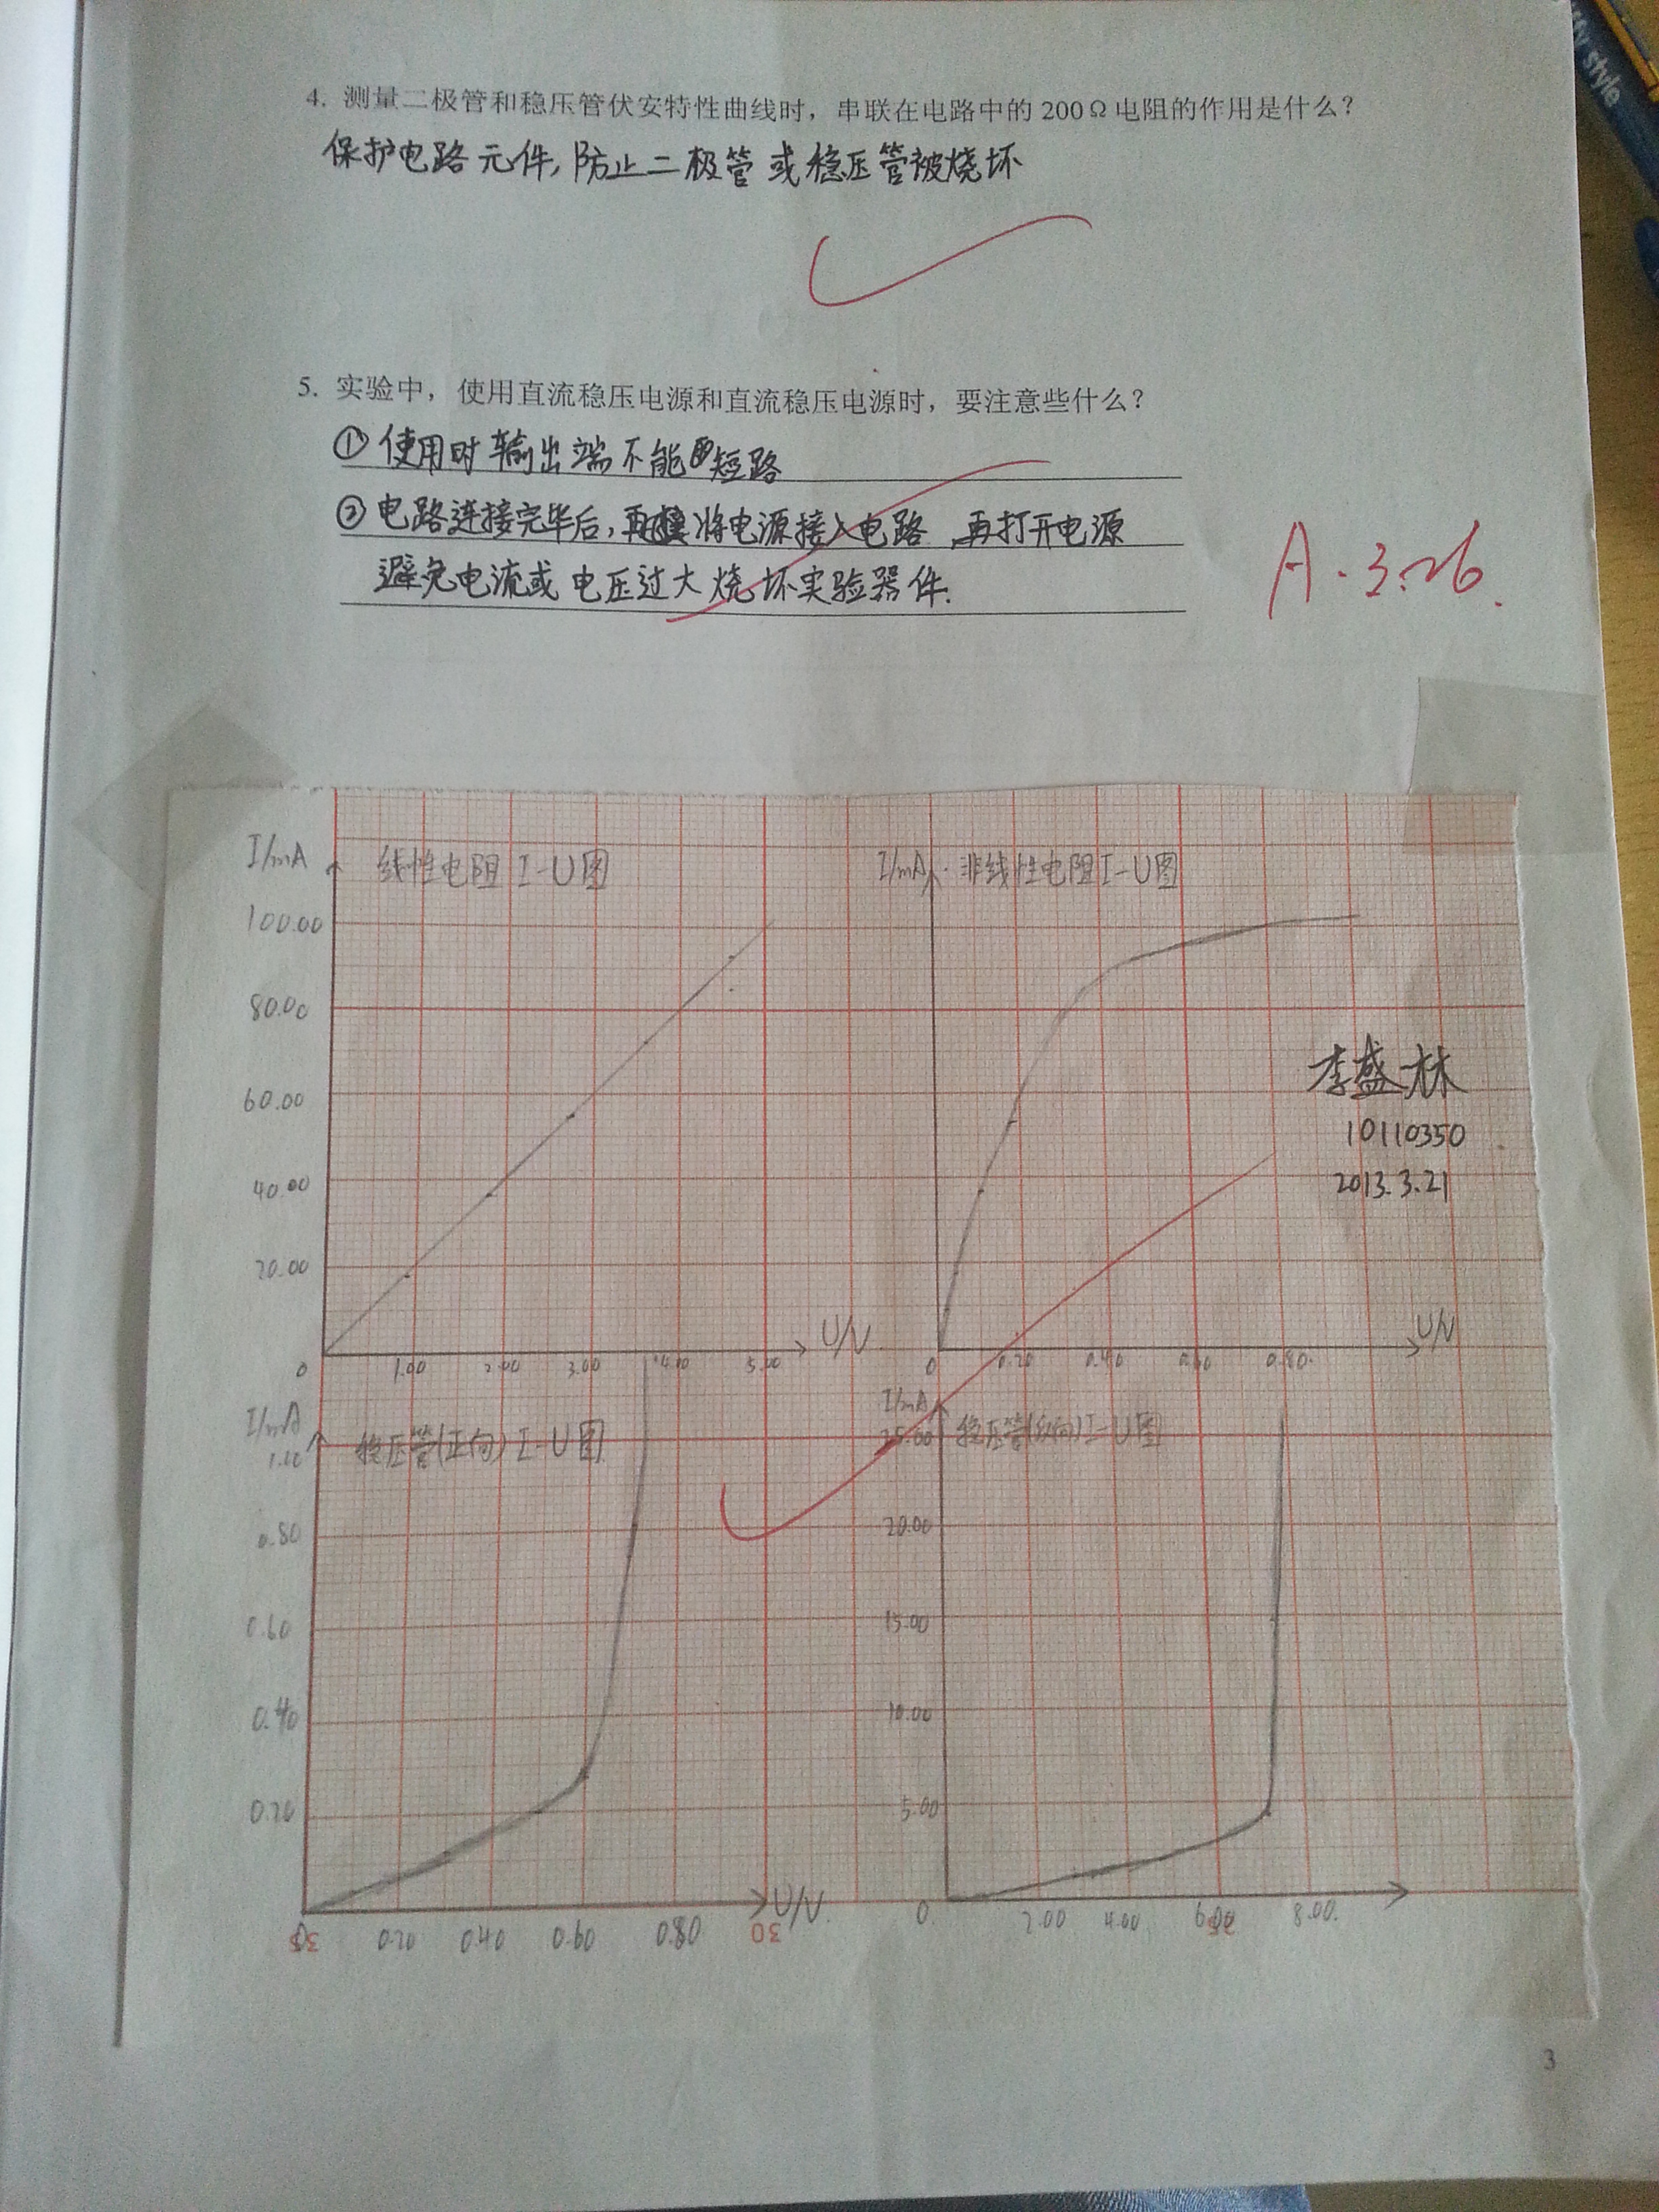 My style
4. 测量二极管和稳压管伏安特性曲线时，串联在电路中的200Ω电阻的作用是什么？
保护电路元件,防止二极管或稳压管被烧坏
5. 实验中，使用直流稳压电源和直流稳压电源时，要注意些什么？
①使用时输出端不能短路
②电路连接完毕后,再将电源接入电路,再打开电源
避免电流或电压过大烧坏实验器件.
A.3.26.
I/mA 线性电阻I-U图
100.00
80.00
60.00
40.00
20.00
0 1.00 2.00 3.00 4.00 5.00 U/V
I/mA 非线性电阻I-U图
0 0.20 0.40 0.60 0.80 U/V
李盛林
10110350
2013.3.21
I/mA 稳压管(正向)I-U图
0.80
0.60
0.40
0.20
0.20 0.40 0.60 0.80 U/V
35 30
I/mA 稳压管(反向)I-U图
25.00
20.00
15.00
10.00
5.00
0 2.00 4.00 6.00 8.00
25
3